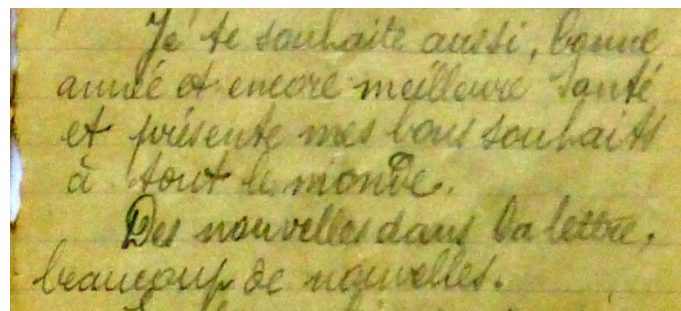 Je te souhaite aussi, bonne
année et encore meilleure santé
et présente mes bons souhaits
à tout le monde.
Des nouvelles dans ta lettre,
beaucoup de nouvelles.